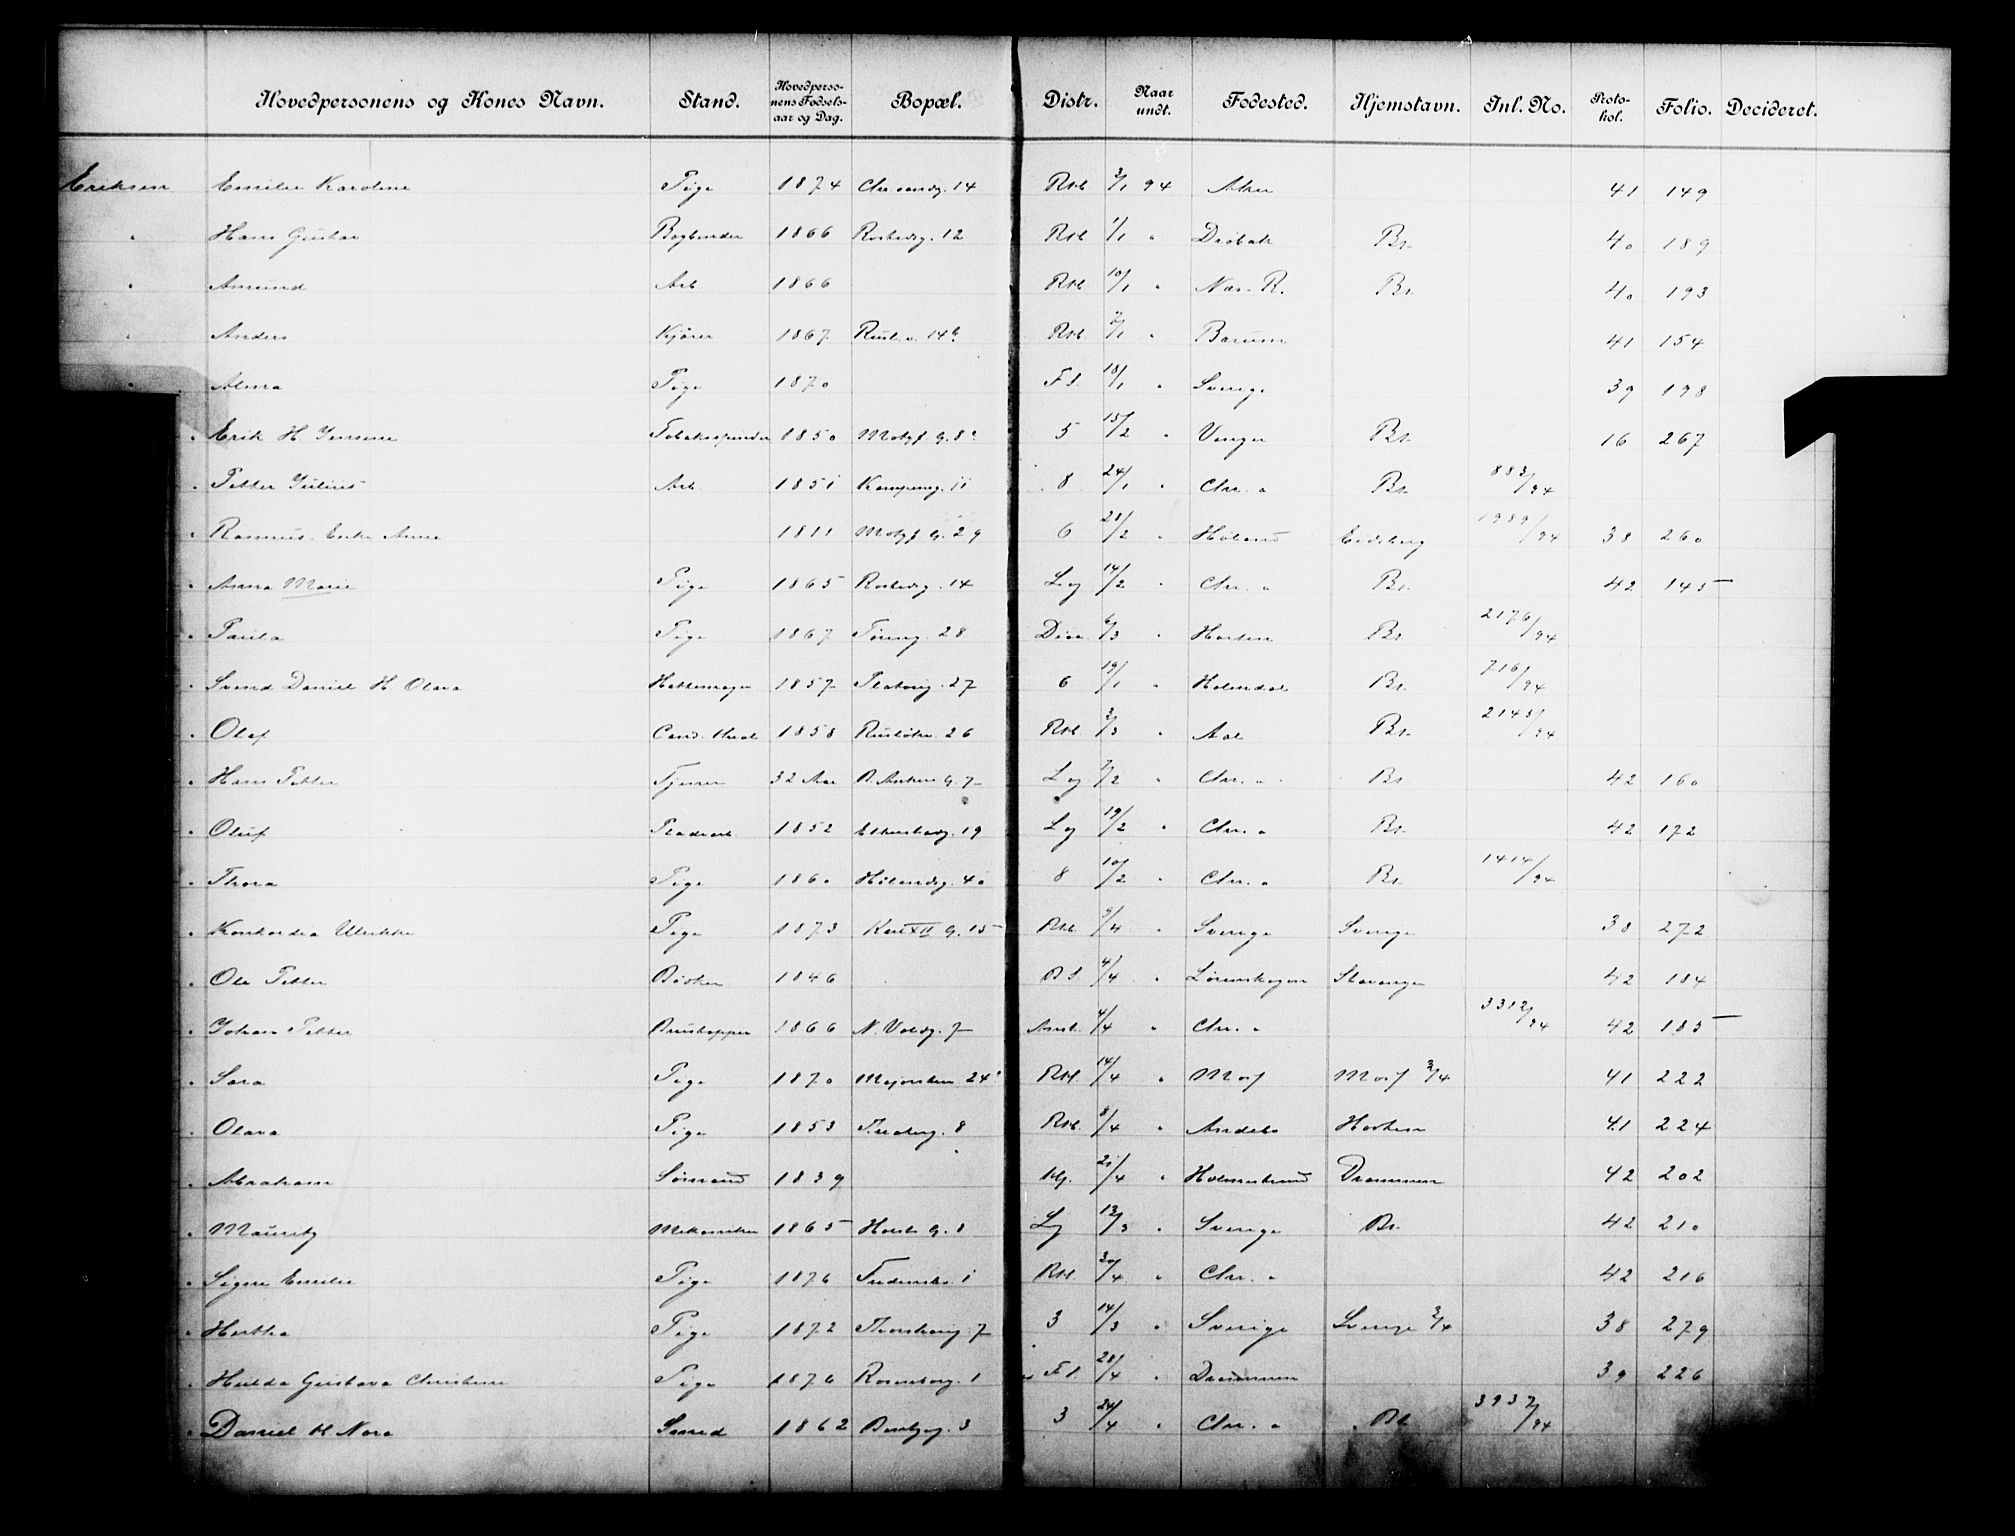 Hovedpersonens og Kones Navn. Stand. Hovedpersonens Fødselsaar og Dag. Bopæl. Distr. Naar undt. Fødested. Hjemstavn. Inl. No. Protokol. Folio. Decideret.
Eriksen Emilie Karoline Pige 1874 Chr.sandsg. 14 Rst. 3/1 94 Aker 41 149
" Hans Gustav Bogbinder 1866 12 Rst. 1/1 " Drøbak Br. 40 189
" Amund Arb. 1866 Rst. 10/1 " Nes. R. Br. 40 193
" Anders Kjører 1867 14 Rst. 7/1 " Bærum 41 154
" Alma Pige 1870 F.l. 18/1 " Sverige 39 198
" Erik H. Jensine Tobakspinder 1850 Motzf. G. 8 5 15/2 " Br. 16 267
" Petter Julius Arb. 1851 Kampeng. 11 8 24/1 " Chr. a Br. 883/94
" Rasmus. Enke Anne 1811 Motzf. G. 29 6 28/2 " Høland Eidsberg 1989/94 38 260
" Anna Marie Pige 1865 14 Lg 14/2 " Chr. a Br. 42 145
" Paula Pige 1867 28 6/3 " Horten Br. 2176/94
" Svend Daniel H. Olava Hattemager 1857 27 6 19/1 " Br. 716/94
" Olaf Cand. 1858 Rusløkv. 26 Rst. 3/3 " Aal Br. 2145/94
" Hans Petter Tjener 32 Aar G. 7 Lg 7/2 " Chr. a Br. 42 160
" Oluf 1852 19 Lg 19/2 " Chr. a Br. 42 172
" Thora Pige 1860 Hølandsg. 40 8 10/2 " Chr. a Br. 1414/94
" Konkordia Ulrikke Pige 1873 Karl XII G. 15 Rst. 5/4 " Sverige Sverige 38 272
" Ole Petter Bødker 1846 4/4 " Lørenskogen Stavanger 42 184
" Johan Petter 1866 N. Voldg. 7 4/4 " Chr. a 3312/94 42 185
" Sara Pige 1870 Majorstuv. 24 Rst. 14/4 " Moss Moss 3/4 41 222
" Olava Pige 1853 Theaterg. 8 Rst. 8/4 " Andebo Horten 41 224
" Abraham Sømand 1839 21/4 " Holmestrand Drammen 42 202
" Mauritz Mekaniker 1865 Holst G. 8 Lg 13/3 " Sverige Br. 42 210
" Signe Emilie Pige 1876 1 Rst. 30/4 " Chr. a 42 216
" Hertha Pige 1872 7 3 14/3 " Sverige Sverige 3/4 38 279
" Hulda Gustava Christine Pige 1876 Rosenborg. 1 F.l. 28/4 " Drammen 39 226
" Daniel H. Nora Smed 1862 3 3 24/4 " Chr. a Br. 3937/94